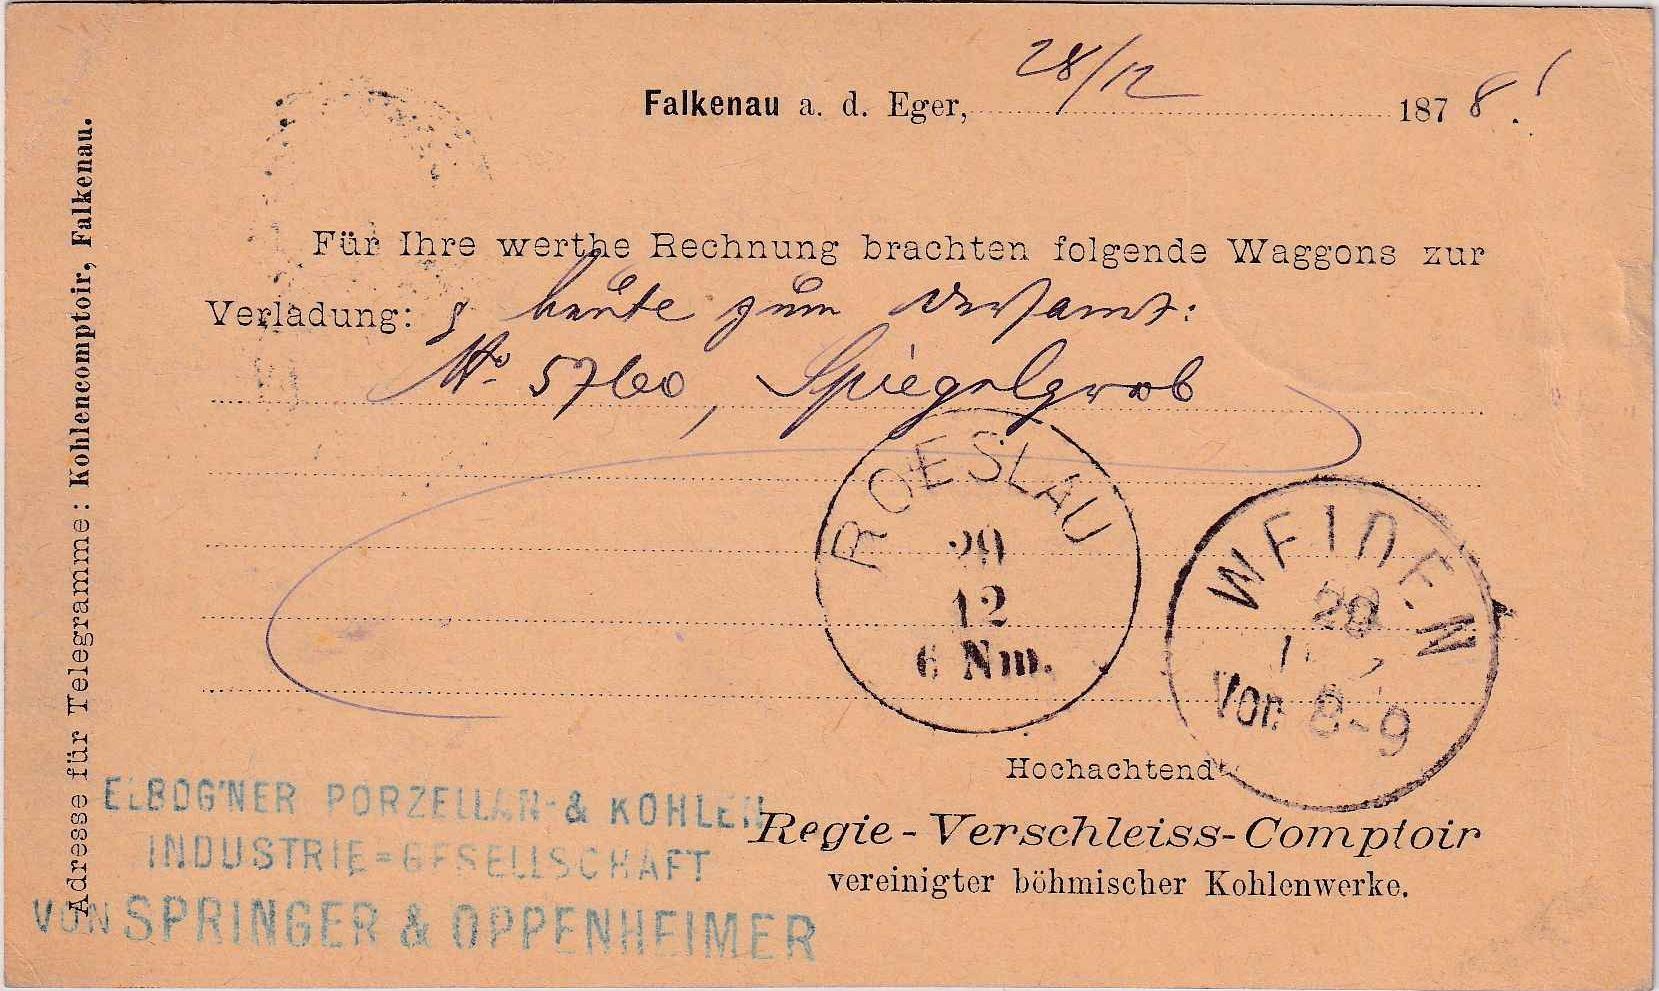 Falkenau a. d. Eger, 28/12 1878.
Für Ihre werthe Rechnung brachten folgende Waggons zur
Verladung: heute zum Versamt:
No. 5760, Spiegelgrob
ROESLAU
20
12
6 Nm.
WEIDEN
20
Vor. 8-9
Hochachtend
Regie-Verschleiss-Comptoir
vereinigter böhmischer Kohlenwerke.
ELBOG'NER PORZELLAN- & KOHLEN
INDUSTRIE=GESELLSCHAFT
VON SPRINGER & OPPENHEIMER
Adresse für Telegramme: Kohlencomptoir, Falkenau.